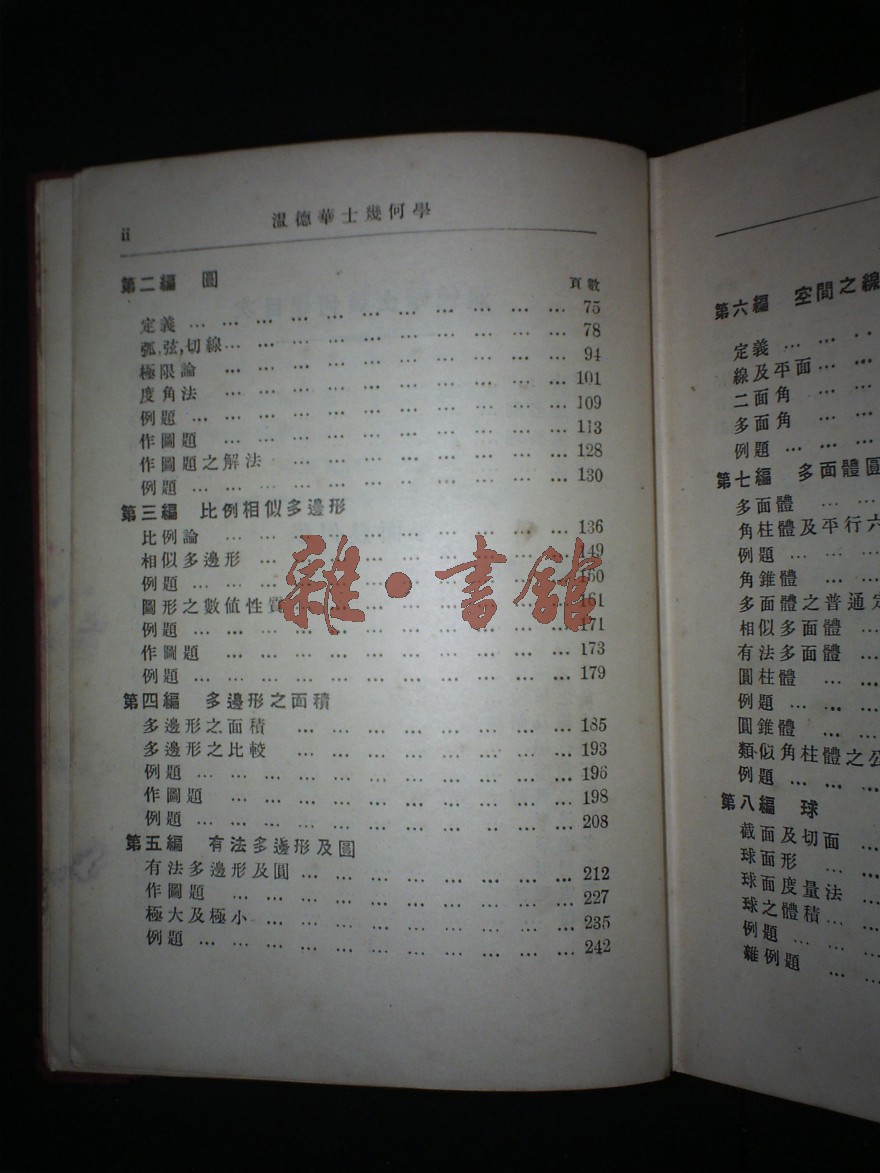 ii 溫德華士幾何學
第二編 圓 頁數
定義 … … … … … … … … … … … 75
弧,弦,切線… … … … … … … … … … 78
極限論 … … … … … … … … … … 94
度角法 … … … … … … … … … … 101
例題 … … … … … … … … … … … 109
作圖題 … … … … … … … … … … 113
作圖題之解法 … … … … … … … … … 128
例題 … … … … … … … … … … … 130
第三編 比例相似多邊形
比例論 … … … … … … … … … … 136
相似多邊形 … … … … … … … … … 149
例題 … … … … … … … … … … … 160
圖形之數値性質 … … … … … … … … 161
例題 … … … … … … … … … … … 171
作圖題 … … … … … … … … … … 173
例題 … … … … … … … … … … … 179
第四編 多邊形之面積
多邊形之面積 … … … … … … … … 185
多邊形之比較 … … … … … … … … 193
例題 … … … … … … … … … … … 196
作圖題 … … … … … … … … … … 198
例題 … … … … … … … … … … … 208
第五編 有法多邊形及圓
有法多邊形及圓 … … … … … … … … 212
作圖題 … … … … … … … … … … 227
極大及極小 … … … … … … … … … 235
例題 … … … … … … … … … … … 242
雜·書館
第六編 空間之線
定義 … … …
線及平面 … …
二面角 … …
多面角 … …
例題 … … …
第七編 多面體圓
多面體 … …
角柱體及平行六
例題 … … …
角錐體 … …
多面體之普通定
相似多面體 …
有法多面體 …
圓柱體 … …
例題 … … …
圓錐體 … …
類似角柱體之公
例題 … … …
第八編 球
截面及切面 …
球面形 … …
球面度量法 …
球之體積 … …
例題 … … …
雜例題 … …